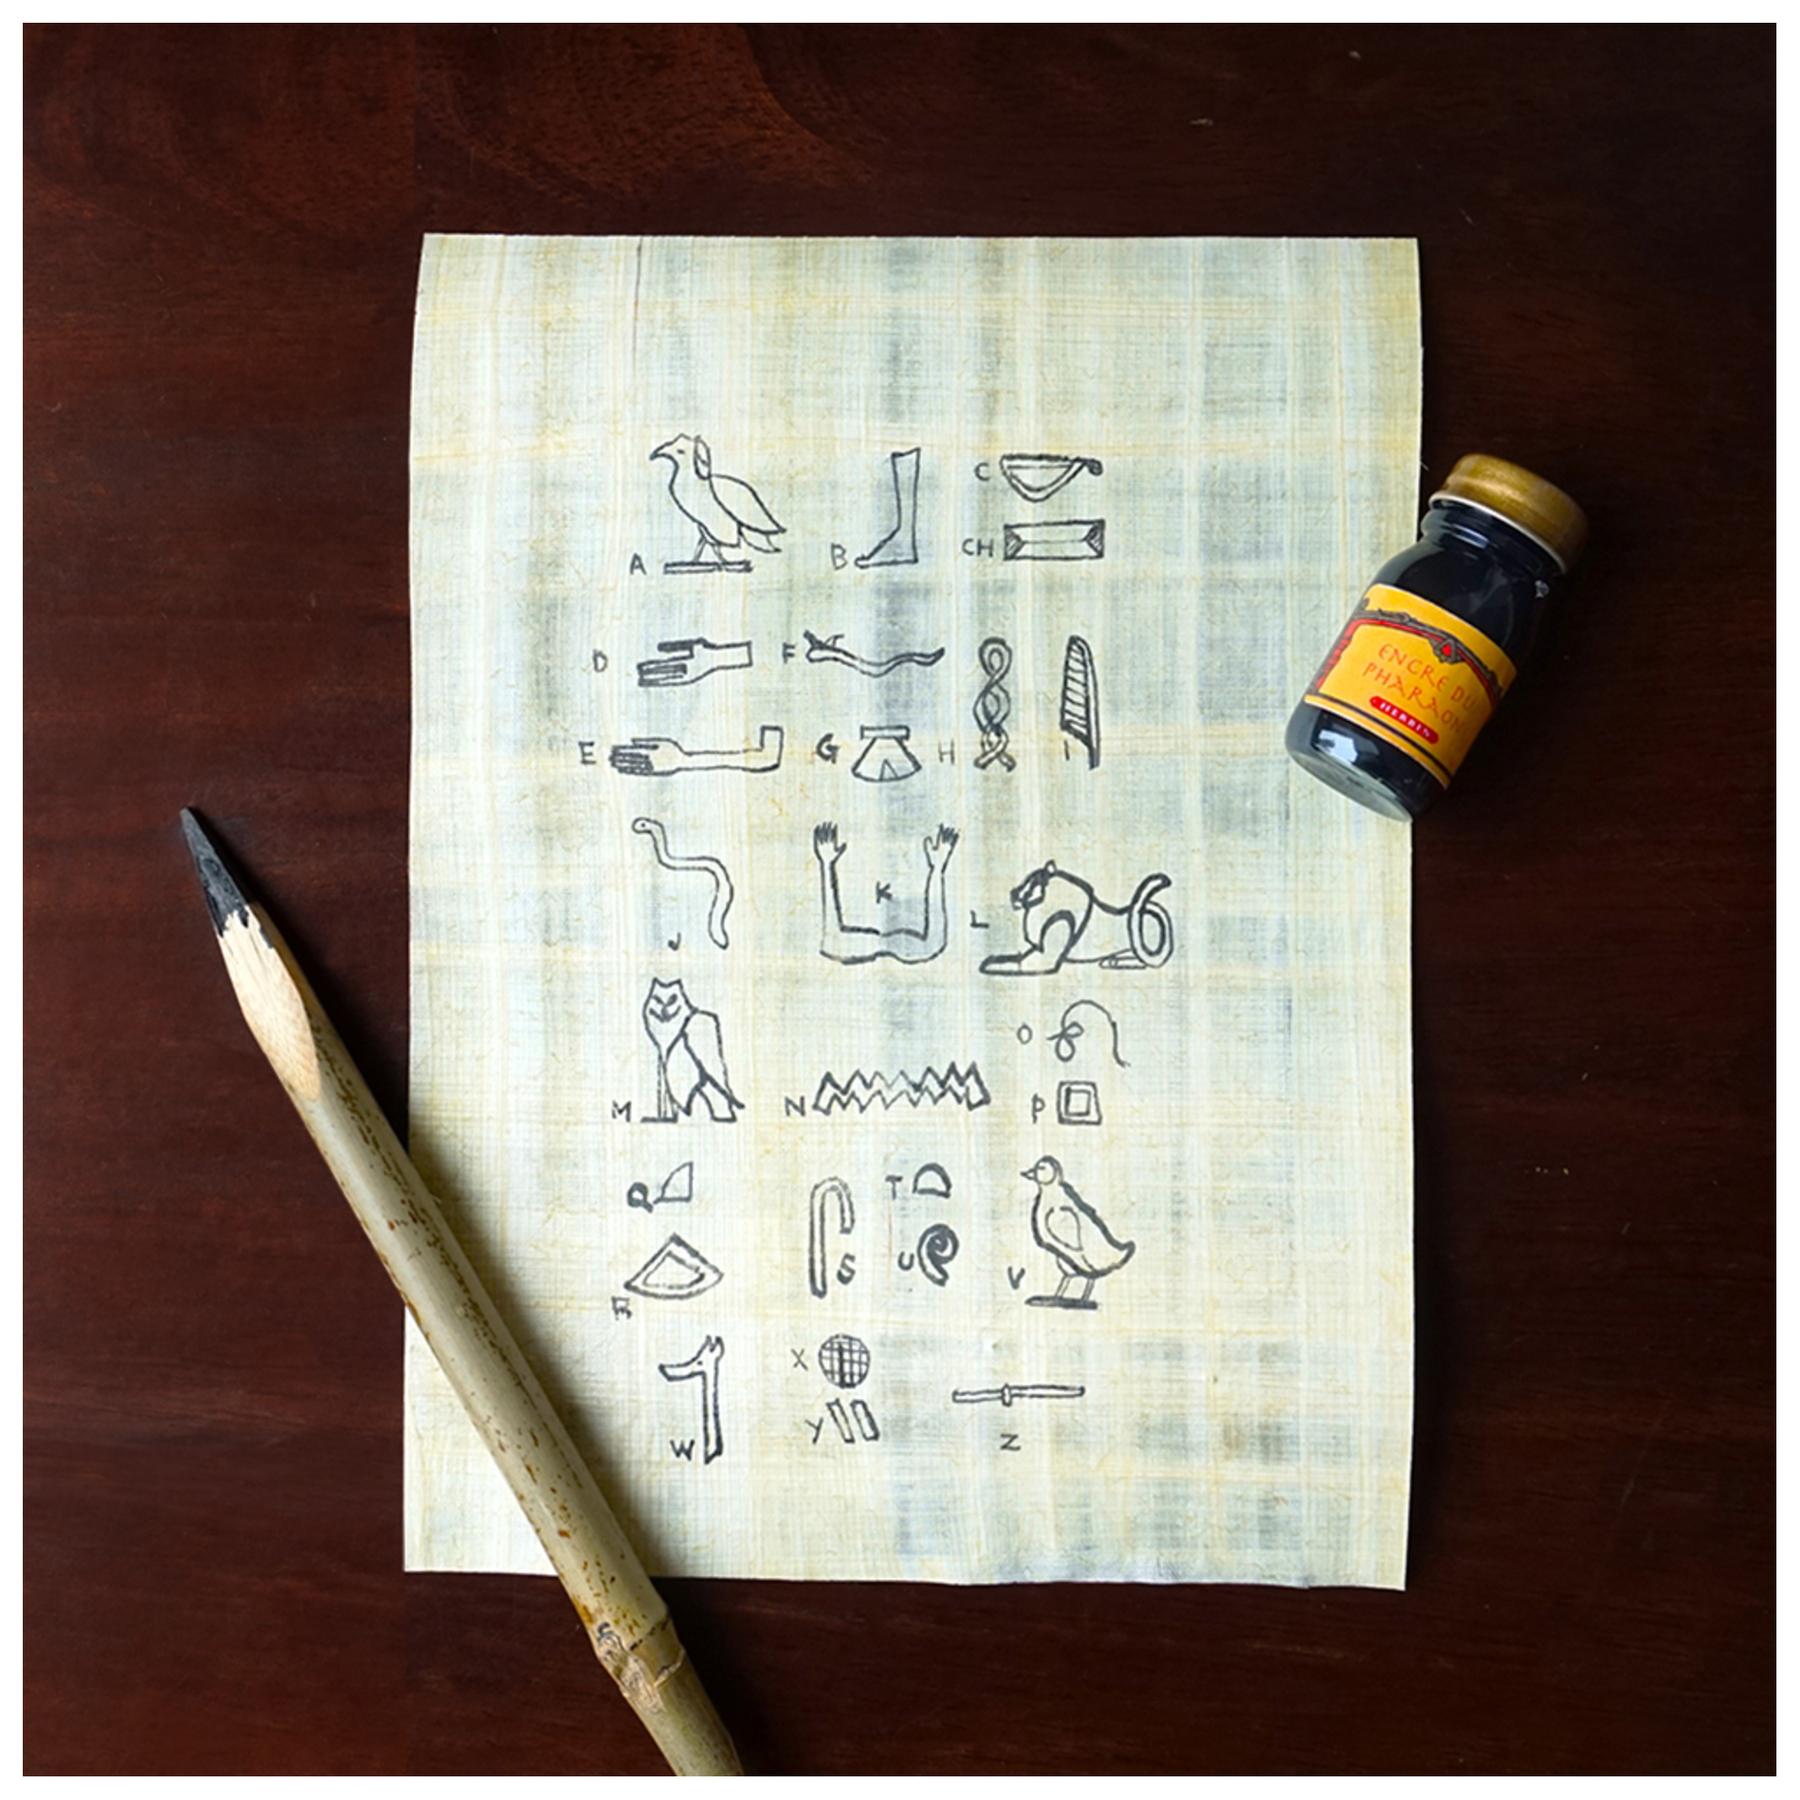 A B C
CH
D F
E G H I
J K L
M N O
P
Q S T V
R U
W X Z
Y
ENCRE DU
PHARAON
HERBIN